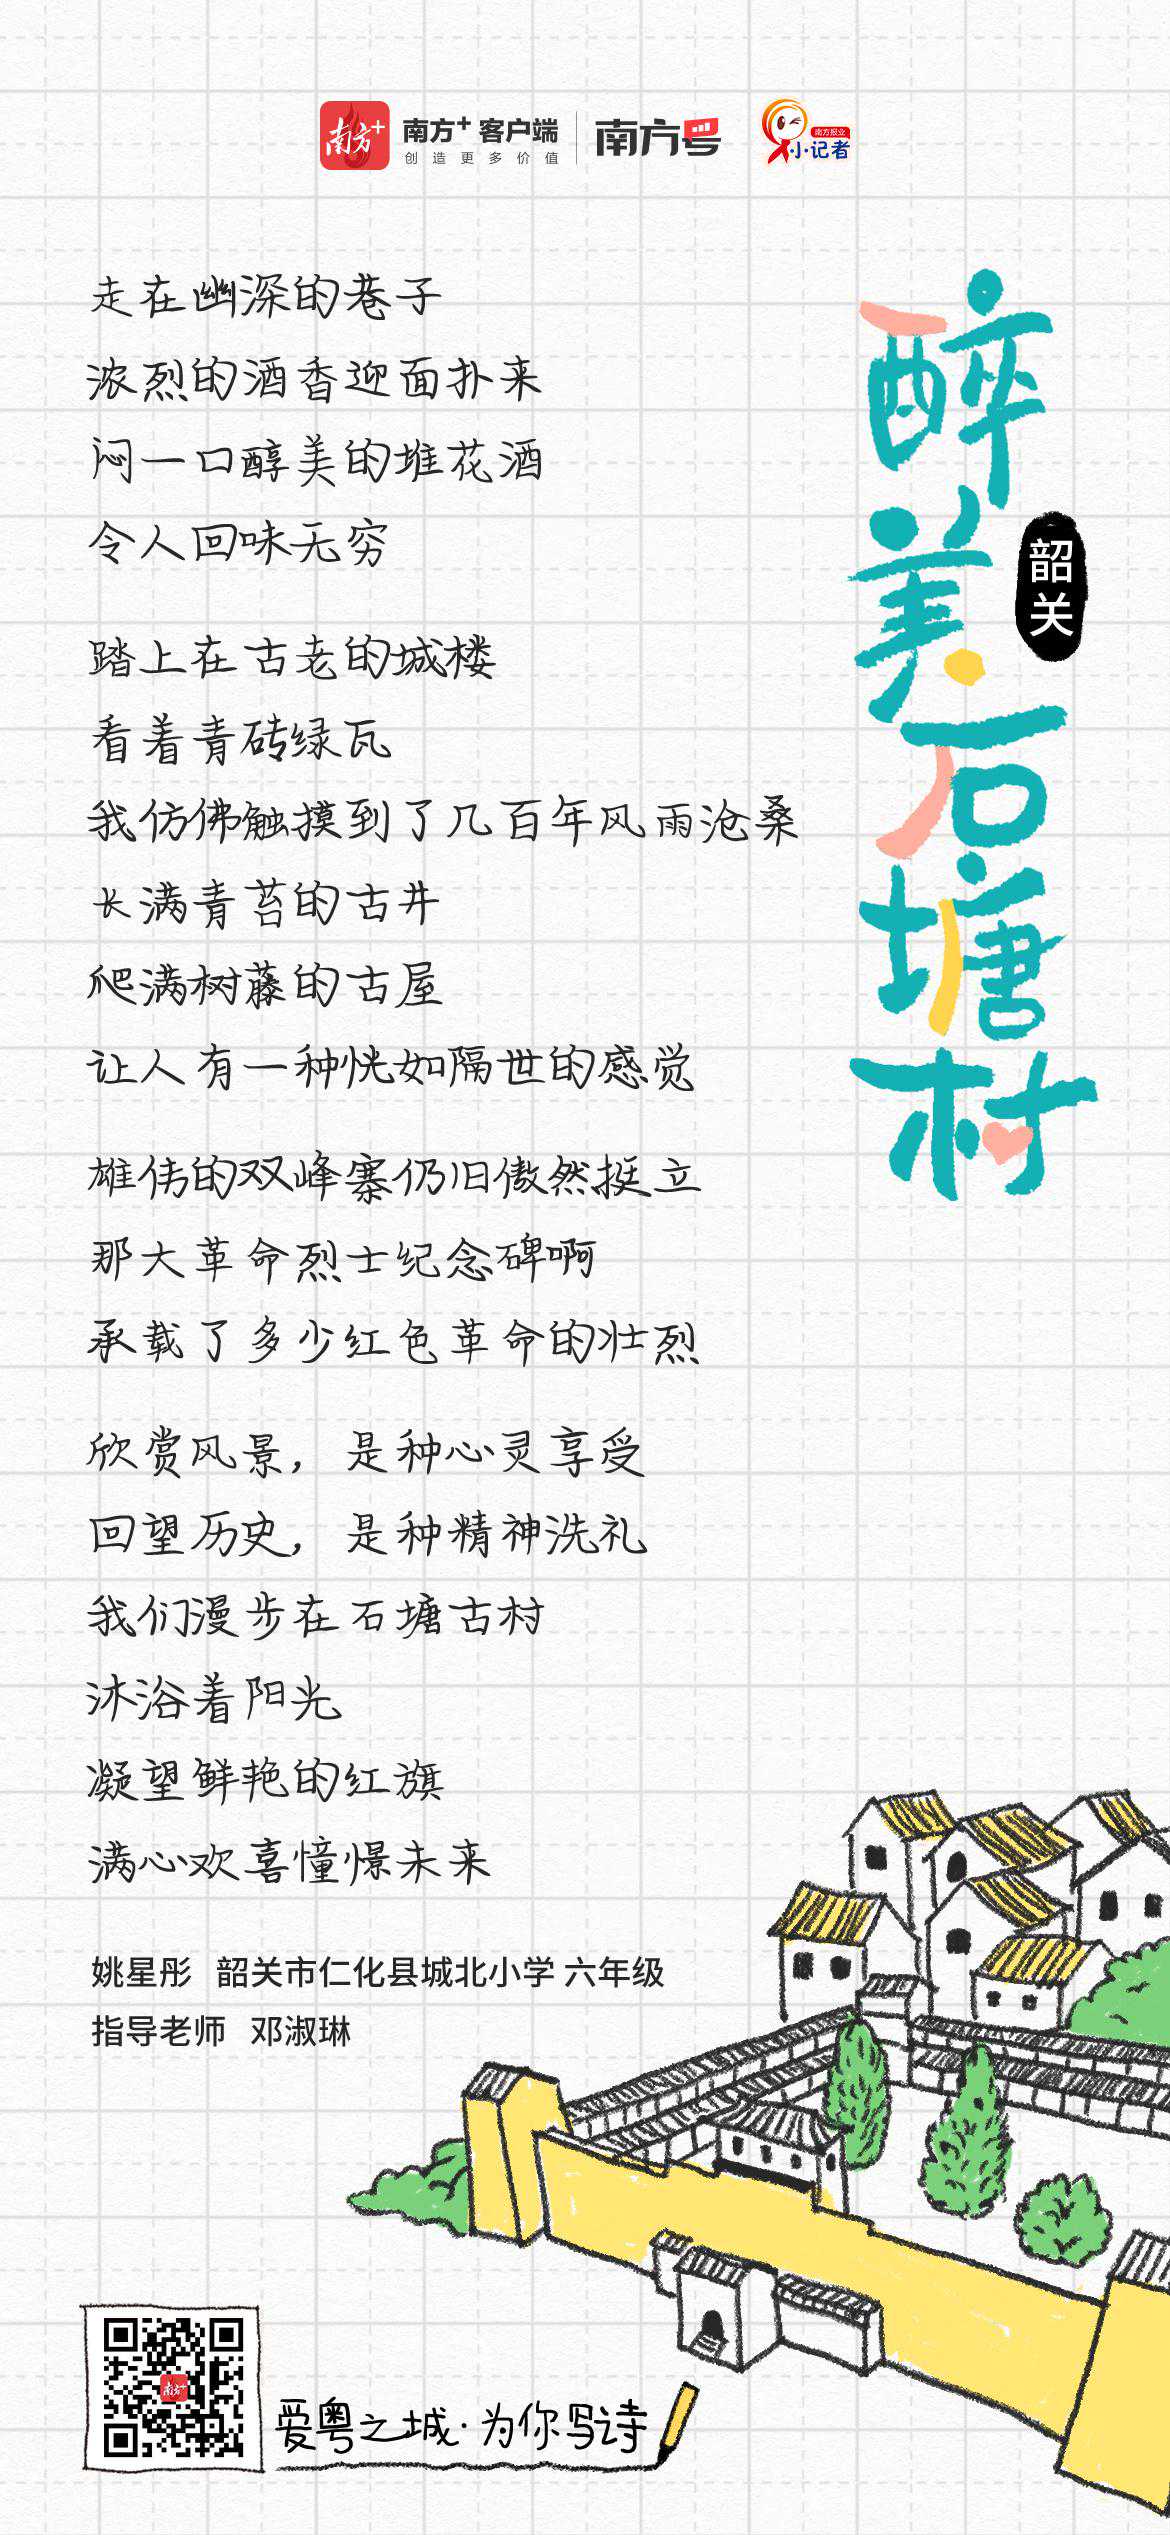 南方+
南方+ 客户端
创造更多价值
南方号
南方报业
小记者
醉美石塘村
韶关
走在幽深的巷子
浓烈的酒香迎面扑来
闷一口醇美的堆花酒
令人回味无穷
踏上在古老的城楼
看着青砖绿瓦
我仿佛触摸到了几百年风雨沧桑
长满青苔的古井
爬满树藤的古屋
让人有一种恍如隔世的感觉
雄伟的双峰寨仍旧傲然挺立
那大革命烈士纪念碑啊
承载了多少红色革命的壮烈
欣赏风景，是种心灵享受
回望历史，是种精神洗礼
我们漫步在石塘古村
沐浴着阳光
凝望鲜艳的红旗
满心欢喜憧憬未来
姚星彤 韶关市仁化县城北小学 六年级
指导老师 邓淑琳
南方+
爱粤之城·为你写诗